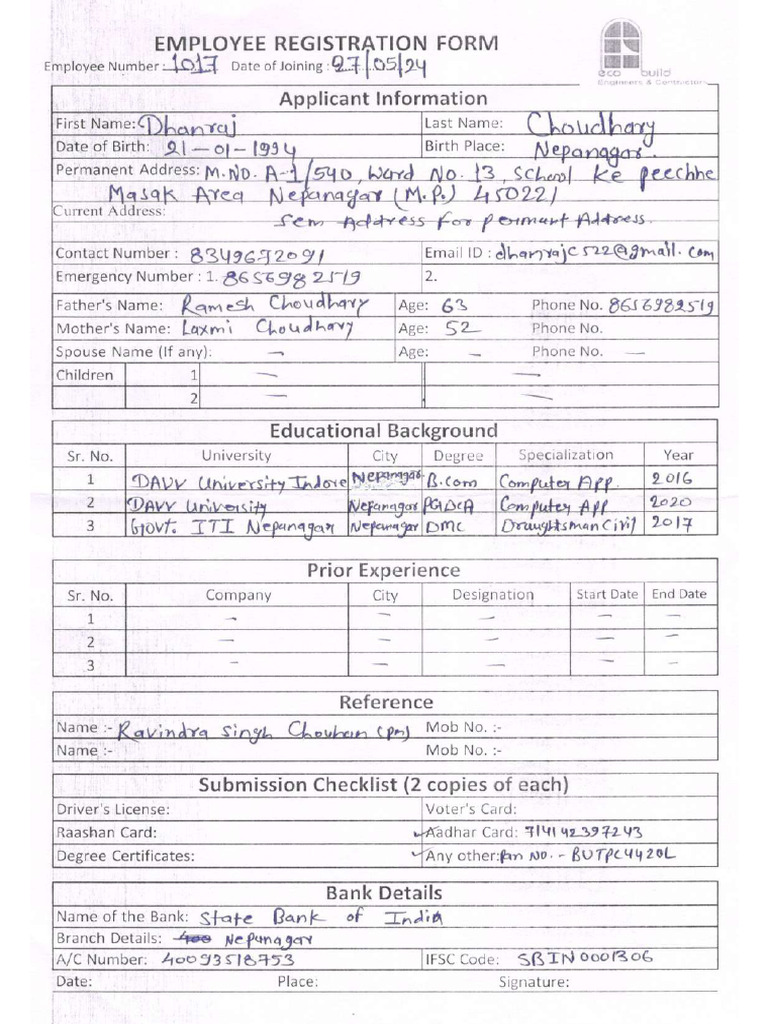 EMPLOYEE REGISTRATION FORM
Employee Number : 1017 Date of Joining : 27/05/24
eco build
Engineers & Contractors
Applicant Information
First Name: Dhanraj Last Name: Choudhary
Date of Birth: 21-01-1994 Birth Place: Nepanagar.
Permanent Address: M.NO. A-1/540, Word No. 13, School ke peechhe
Masak Area Nepanagar (M.P.) 450221
Current Address: Sem Address for permart Address.
Contact Number : 8349672091 Email ID : dhanrajc522@gmail.com
Emergency Number : 1. 8656982519 2.
Father's Name: Ramesh Choudhary Age: 63 Phone No. 8656982519
Mother's Name: Laxmi Choudhary Age: 52 Phone No.
Spouse Name (If any): — Age: — Phone No. —
Children 1 — —
2 — —
Educational Background
Sr. No. University City Degree Specialization Year
1 DAVV University Indore Nepanagar B.com Computer App. 2016
2 DAVV University Nepanagar PGDCA Computer App 2020
3 Govt. ITI Nepanagar Nepanagar DMC Draughtsman Civil 2017
Prior Experience
Sr. No. Company City Designation Start Date End Date
1 — — — — —
2 — — — — —
3 — — — — —
Reference
Name :- Ravindra Singh Chouhan (pm) Mob No. :-
Name :- Mob No. :-
Submission Checklist (2 copies of each)
Driver's License: Voter's Card:
Raashan Card: ✓Aadhar Card: 714142397243
Degree Certificates: ✓Any other: Pan NO. - BUTPC4420L
Bank Details
Name of the Bank: State Bank of India
Branch Details: 400 Nepanagar
A/C Number: 40093518753 IFSC Code: SBIN0001306
Date: Place: Signature: